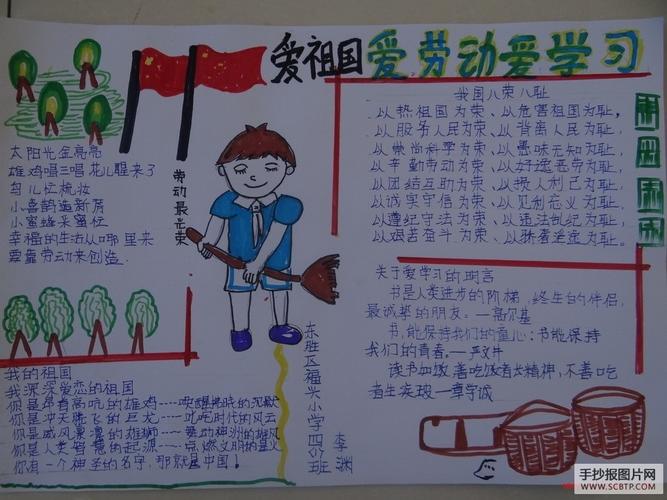 爱祖国爱劳动爱学习
太阳光金亮亮
雄鸡唱三唱 花儿醒来了
鸟儿忙梳妆
小喜鹊造新房
小蜜蜂采蜜忙
幸福的生活从哪里来
要靠劳动来创造.
劳动最光荣
我国八荣八耻
以热祖国为荣、以危害祖国为耻,
以服务人民为荣、以背离人民为耻,
以崇尚科学为荣、以愚昧无知为耻,
以辛勤劳动为荣、以好逸恶劳为耻,
以团结互助为荣、以损人利己为耻,
以诚实守信为荣、以见利忘义为耻,
以遵纪守法为荣、以违法乱纪为耻,
以艰苦奋斗为荣、以骄奢淫逸为耻.
关于爱学习的明言
书是人类进步的阶梯,终生的伴侣,
最诚挚的朋友.—高尔基
书,能保持我们的童心;书能保持
我们的青春.—严文井
读书如饭,善吃饭者长精神,不善吃
者生疾玻—章学诚
我的祖国
我深深爱恋的祖国
你是昂首高吭的雄鸡——唤醒拂晓的沉默
你是冲天腾飞的巨龙——叱咤时代的风云
你是威风凛凛的雄狮——舞动神洲的雄风
你是人类智慧的起源——点燃文明的星火
你有一个神圣的名字,那就是中国!
东胜区福兴小学四(1)班
李渊
手抄报图片网
WWW.SCBTP.COM